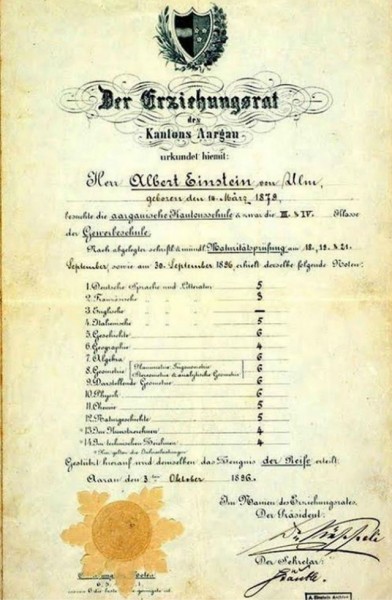 Der Erziehungsrat
des
Kantons Aargau
urkundet hiemit:
Herr Albert Einstein von Ulm,
geboren den 14. März 1879,
besuchte die aargauische Kantonsschule & zwar die III. & IV. Klasse
der Gewerbeschule.
Nach abgelegter schriftl. & mündl. Maturitätsprüfung am 18., 19. & 21.
September, sowie am 30. September 1896, erhielt derselbe folgende Noten:
1. Deutsche Sprache und Litteratur 5
2. Französische 3
3. Englische —
4. Italienische 5
5. Geschichte 6
6. Geographie 4
7. Algebra 6
8. Geometrie Planimetrie, Trigonometrie Stereometrie & analytische Geometrie 6
9. Darstellende Geometrie 6
10. Physik 6
11. Chemie 5
12. Naturgeschichte 5
*13. Im Kunstzeichnen 4
*14. Im technischen Zeichnen 4
* Hier gelten die Jahresleistungen.
Gestützt hierauf wird demselben das Zeugnis der Reife erteilt.
Aarau den 3ten Oktober 1896.
Im Namen des Erziehungsrates,
Der Präsident:
Der Sekretär:
A. Einstein Archive